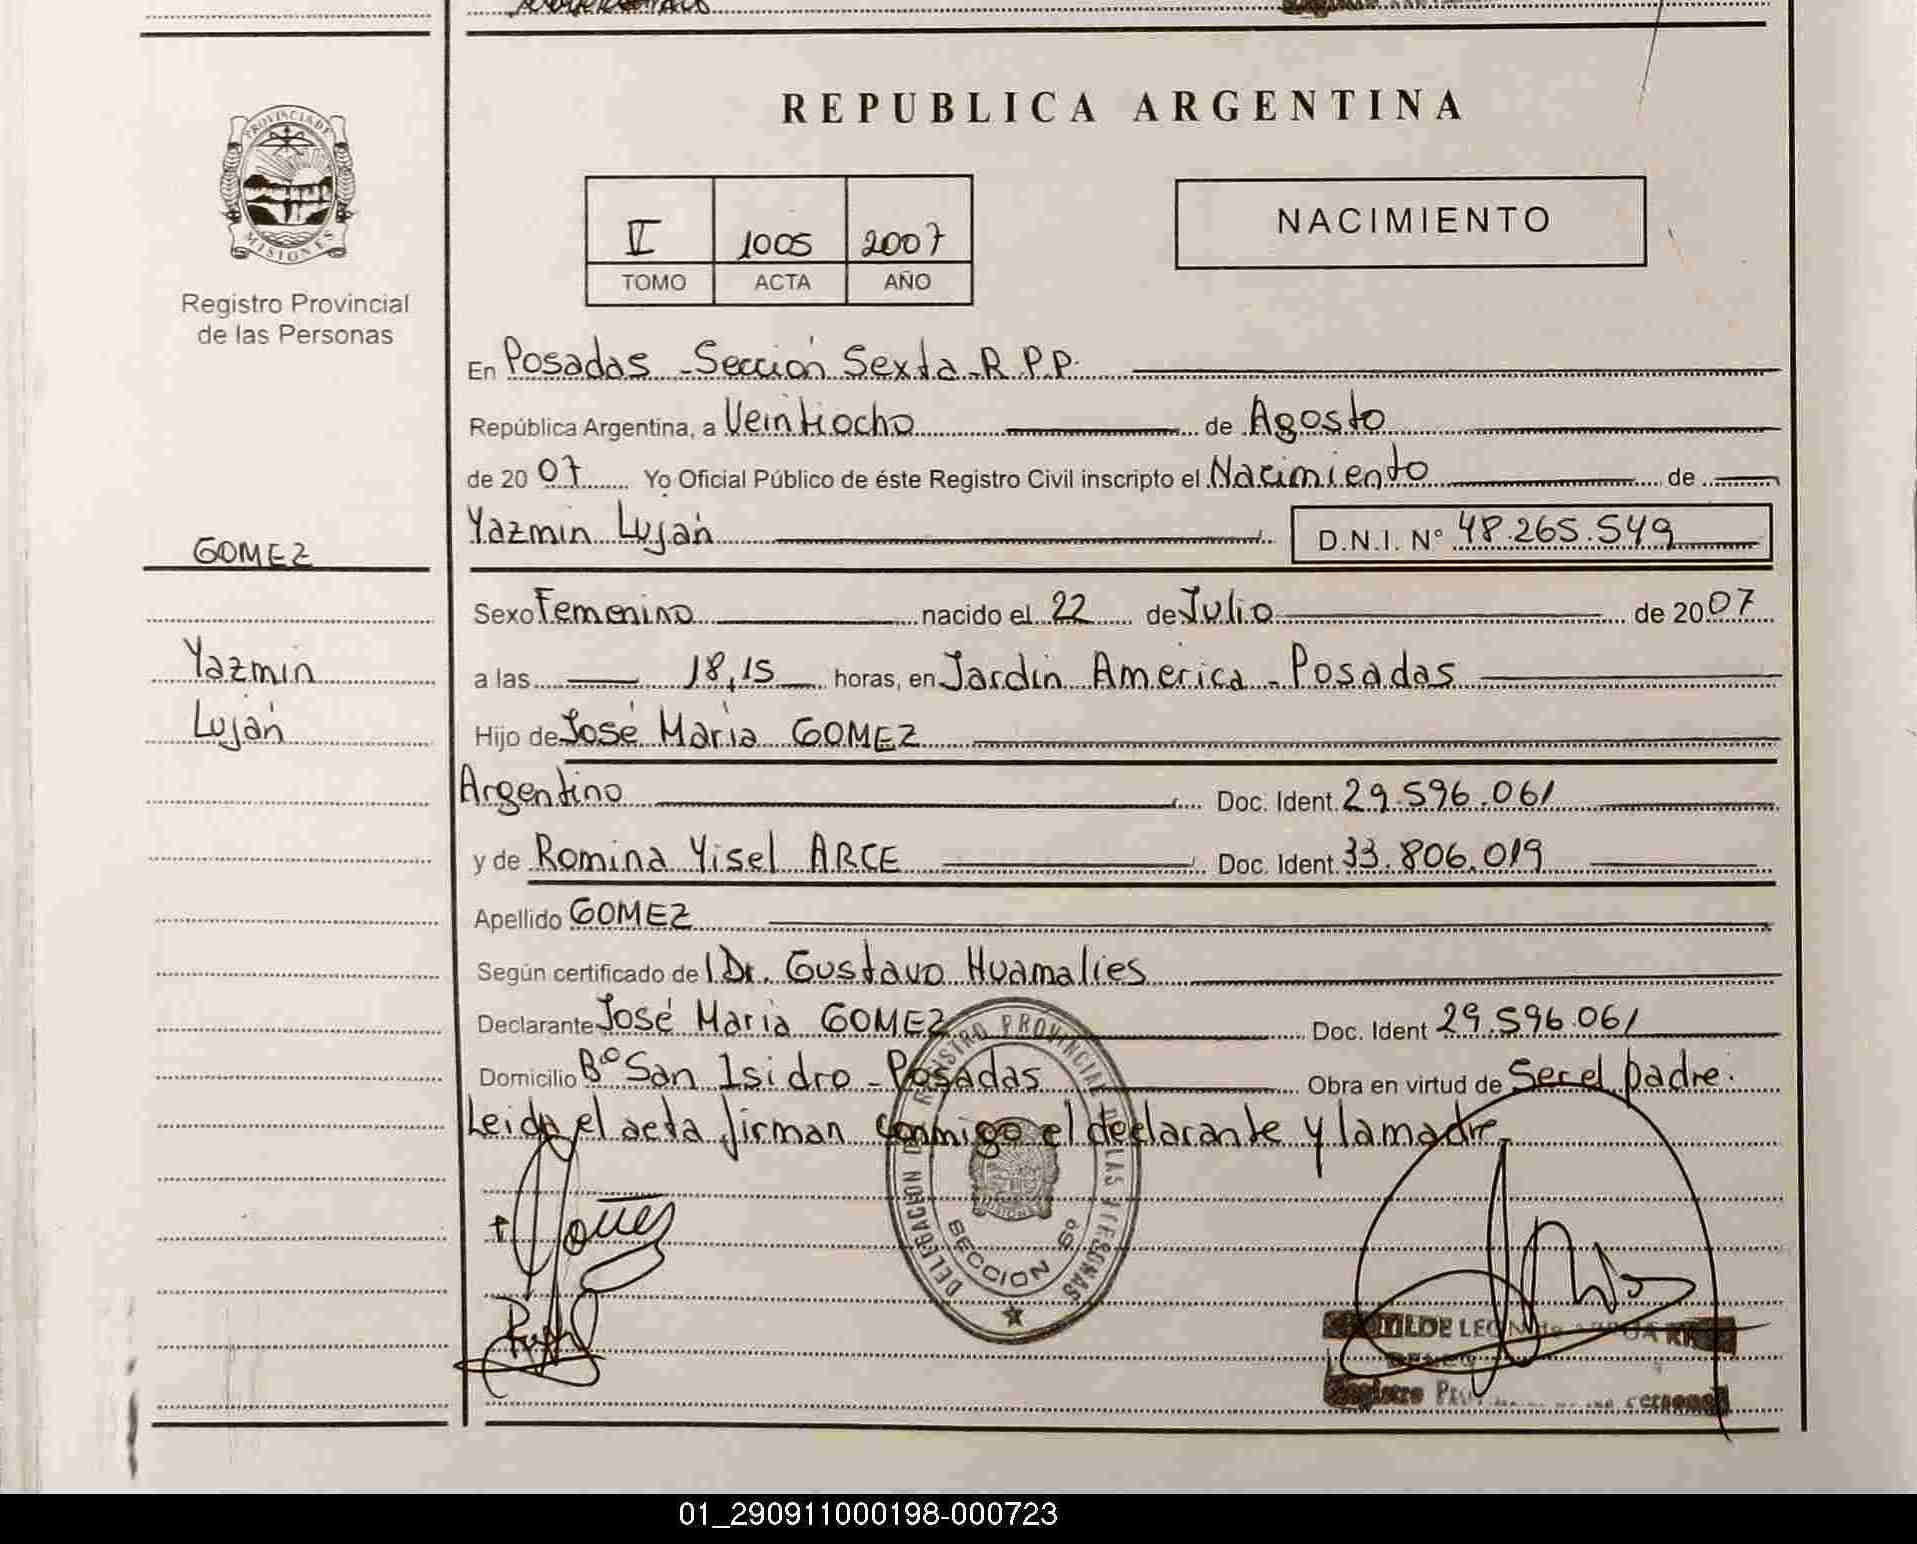 REPUBLICA ARGENTINA
PROVINCIA DE
MISIONES
Registro Provincial
de las Personas
V 1005 2007
TOMO ACTA AÑO
NACIMIENTO
En Posadas - Sección Sexta - R.P.P.
República Argentina, a Veintiocho de Agosto
de 2007 Yo Oficial Público de éste Registro Civil inscripto el Nacimiento de
Yazmin Luján D.N.I. Nº 48.265.549
GOMEZ
Sexo Femenino nacido el 22 de Julio de 2007
Yazmin
a las 18,15 horas, en Jardin America - Posadas
Luján
Hijo de José María GOMEZ
Argentino Doc. Ident. 29.596.061
y de Romina Yisel ARCE Doc. Ident. 33.806.019
Apellido GOMEZ
Según certificado de l Dr. Gustavo Huamalies
Declarante José María GOMEZ Doc. Ident 29.596.061
Domicilio Bº San Isidro - Posadas Obra en virtud de Ser el padre.
Leida el acta firman conmigo el declarante y la madre.
DELEGACION DE REGISTRO PROVINCIAL DE LAS PERSONAS
SECCION 6º
TILDE LEON de
Registro
01_290911000198-000723